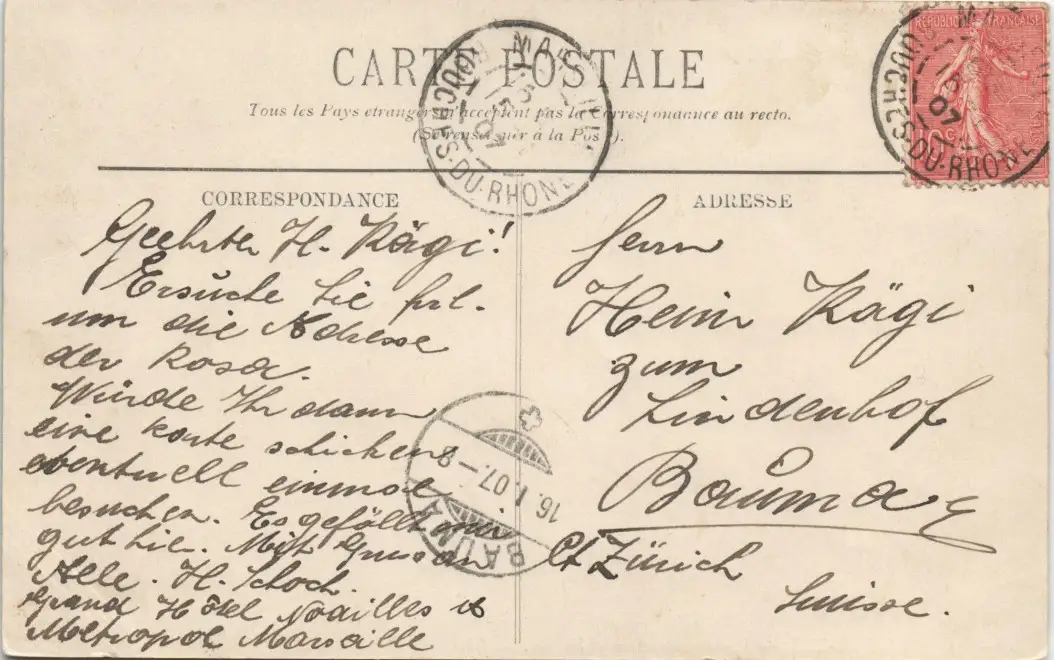 CARTE POSTALE
Tous les Pays etrangers n'acceptent pas la Correspondance au recto.
(Se renseigner à la Poste).
RÉPUBLIQUE FRANÇAISE
10c
BOUCHES-DU-RHONE
07
BOUCHES-DU-RHONE
07
CORRESPONDANCE
Geehrter H. Kägi!
Ersuche Sie frl.
um die Adresse
der Rosa.
Würde Ihr dann
eine Karte schicken
eventuell einmal
besuchen. Es gefällt mir
gut hie. Mit Gruss an
Alle. H. Schoch.
Grand Hôtel Noailles &
Métropol Marseille
ADRESSE
Herrn
Heinr Kägi
zum
Lindenhof
Bauma
Ct Zürich
Suisse.
BAUMA
16.I.07.-8